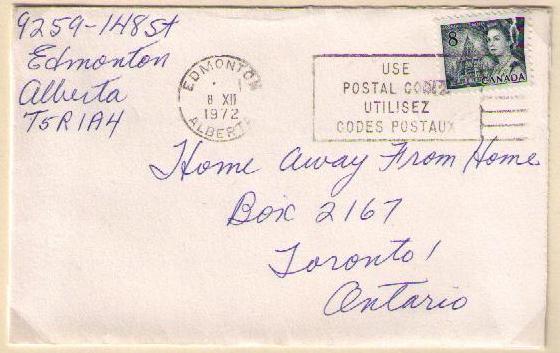 9259-148 St
Edmonton
Alberta
T5R 1A4
EDMONTON
8 XII
1972
ALBERTA
USE
POSTAL CODES
UTILISEZ
CODES POSTAUX
8
CANADA
Home Away From Home
Box 2167
Toronto 1
Ontario